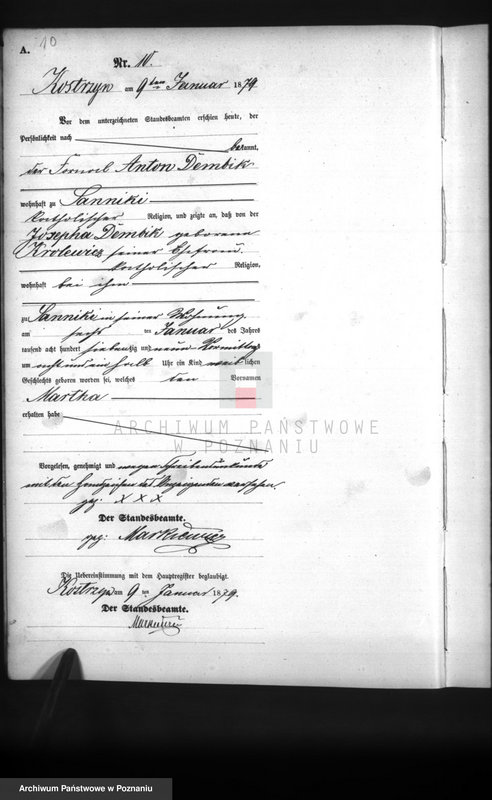 A.
10
Nr. 10.
Kostrzyn am 9ten Januar 1879
Vor dem unterzeichneten Standesbeamten erschien heute, der
Persönlichkeit nach bekannt,
der Fornal Anton Dembik
wohnhaft zu Sanniki
katholischer Religion, und zeigte an, daß von der
Josepha Dembik geborene
Krolewicz seiner Ehefrau
katholischer Religion,
wohnhaft bei ihm
zu Sanniki in seiner Wohnung
am sechs ten Januar des Jahres
tausend acht hundert siebenzig und neun Vormittags
um acht und ein halb Uhr ein Kind weiblichen
Geschlechts geboren worden sei, welches den Vornamen
Martha
erhalten habe
ARCHIWUM PAŃSTWOWE
W POZNANIU
Vorgelesen, genehmigt und wegen Schreibensunkunde
mit den Handzeichen des Anzeigenden versehen.
gez: X X X
Der Standesbeamte.
gez: Markiewicz
Die Uebereinstimmung mit dem Hauptregister beglaubigt.
Kostrzyn am 9 ten Januar 1879.
Der Standesbeamte.
Archiwum Państwowe w Poznaniu